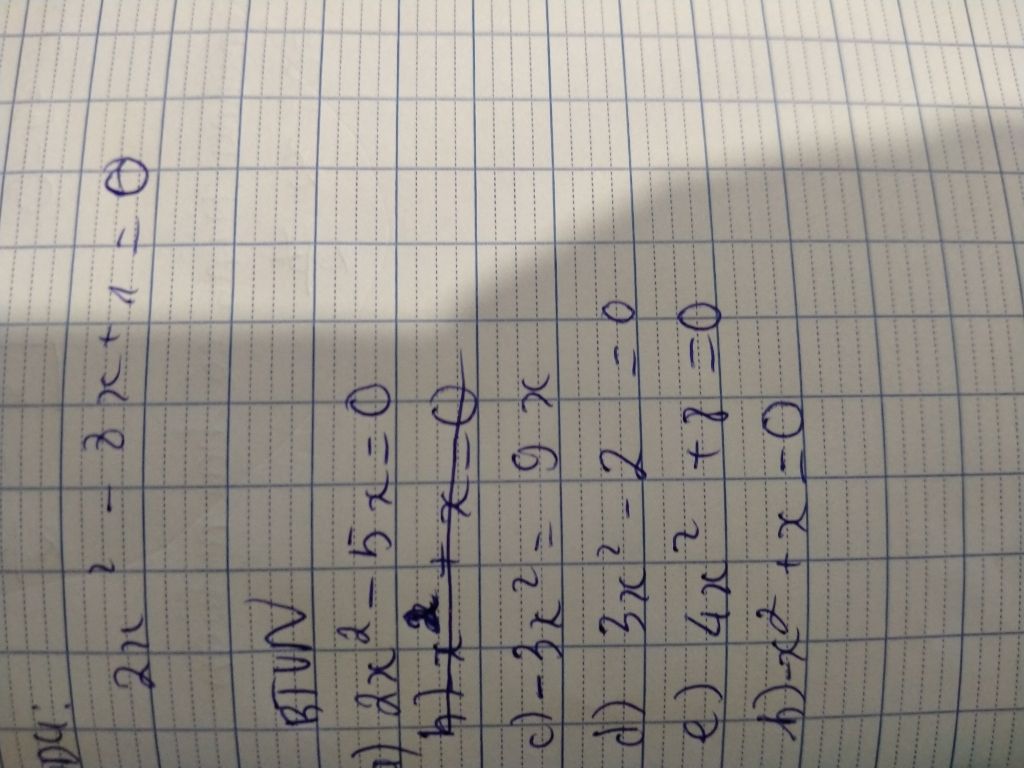 2x² - 8x + 1 = 0
BTVN
a) 2x² - 5x = 0
b) -x² + x = 0
c) -3x² = 9x
d) 3x² - 2 = 0
e) 4x² + 8 = 0
b) -x² + x = 0